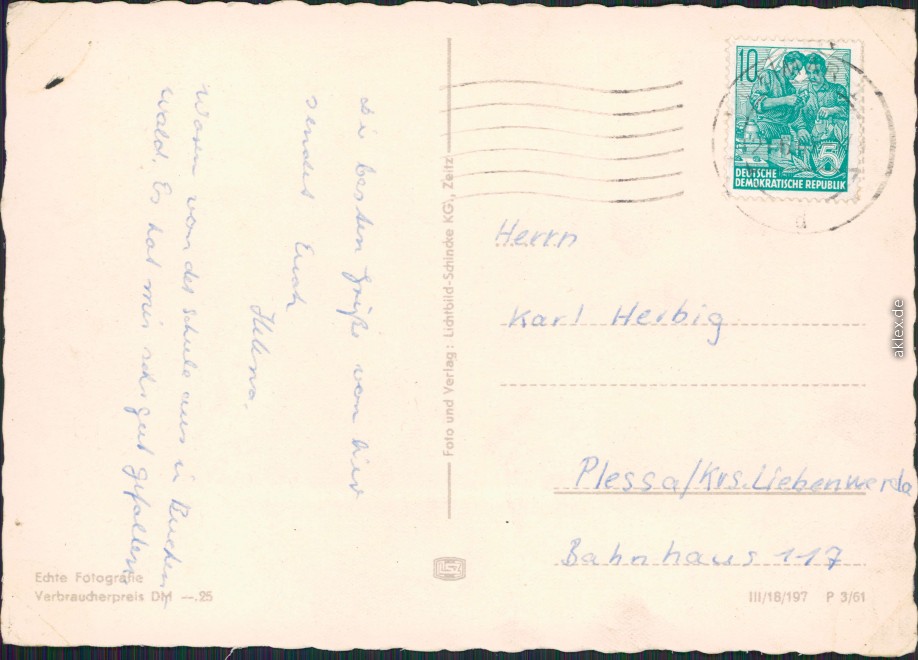 Die besten Grüße von hier
sendet Euch
Helena.
Waren von der Schule aus in Buchen-
wald. Es hat mir sehr gut gefallen
Foto und Verlag: Lichtbild-Schincke KG, Zeitz
10
5
DEUTSCHE
DEMOKRATISCHE REPUBLIK
Herrn
Karl Herbig
Plessa/Krs.Liebenwerda
Bahnhaus 117
Echte Fotografie
Verbraucherpreis DM —.25
LSZ
III/18/197 P 3/61
aklex.de